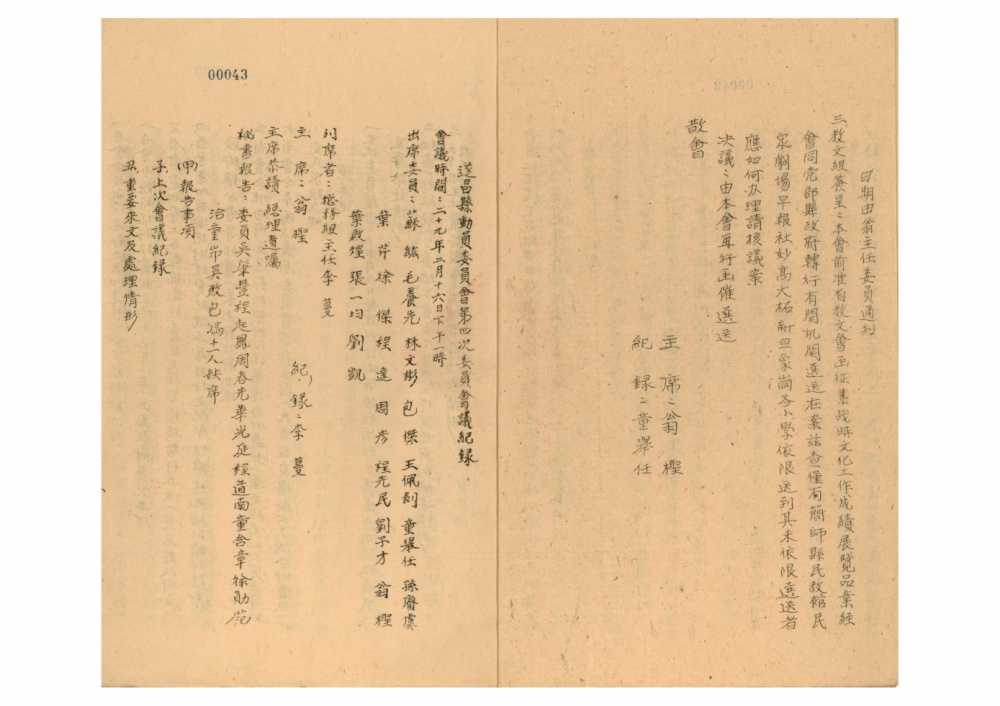 日期由翁主任委員通知
三、教文組簽呈：本會前准省教文會函征集战時文化工作成績展覽品業經
會同党部縣政府轉行有関机関選送在案茲查僅有簡師縣民教館民
眾劇場早報社妙高大柘新旦家崗各小學依限送到其未依限選送者
應如何办理請核議案
决議：由本會再行函催選送
散會
主席：翁檉
紀錄：童舉任
00043
遂昌縣動員委員會第四次委員會議紀錄
會議時間：二十九年二月十六日下午一時
出席委員：蘇紘 毛養先 林文彬 包傑 王佩釗 童舉任 孫賡虞
葉芹 徐傑 程達 周彥 程光民 劉子才 翁檉
葉啟煋 張一均 劉凱
列席者：總務組主任李蔓
主席：翁檉 紀錄：李蔓
主席恭讀總理遺囑
秘書報告：委員吳肇豐程起鳳周春光華光庭程道南童含章徐勛苑
治童岇吳敗包馮十一人缺席
(甲)報告事項
子、上次會議紀錄
丑、重要來文及處理情形